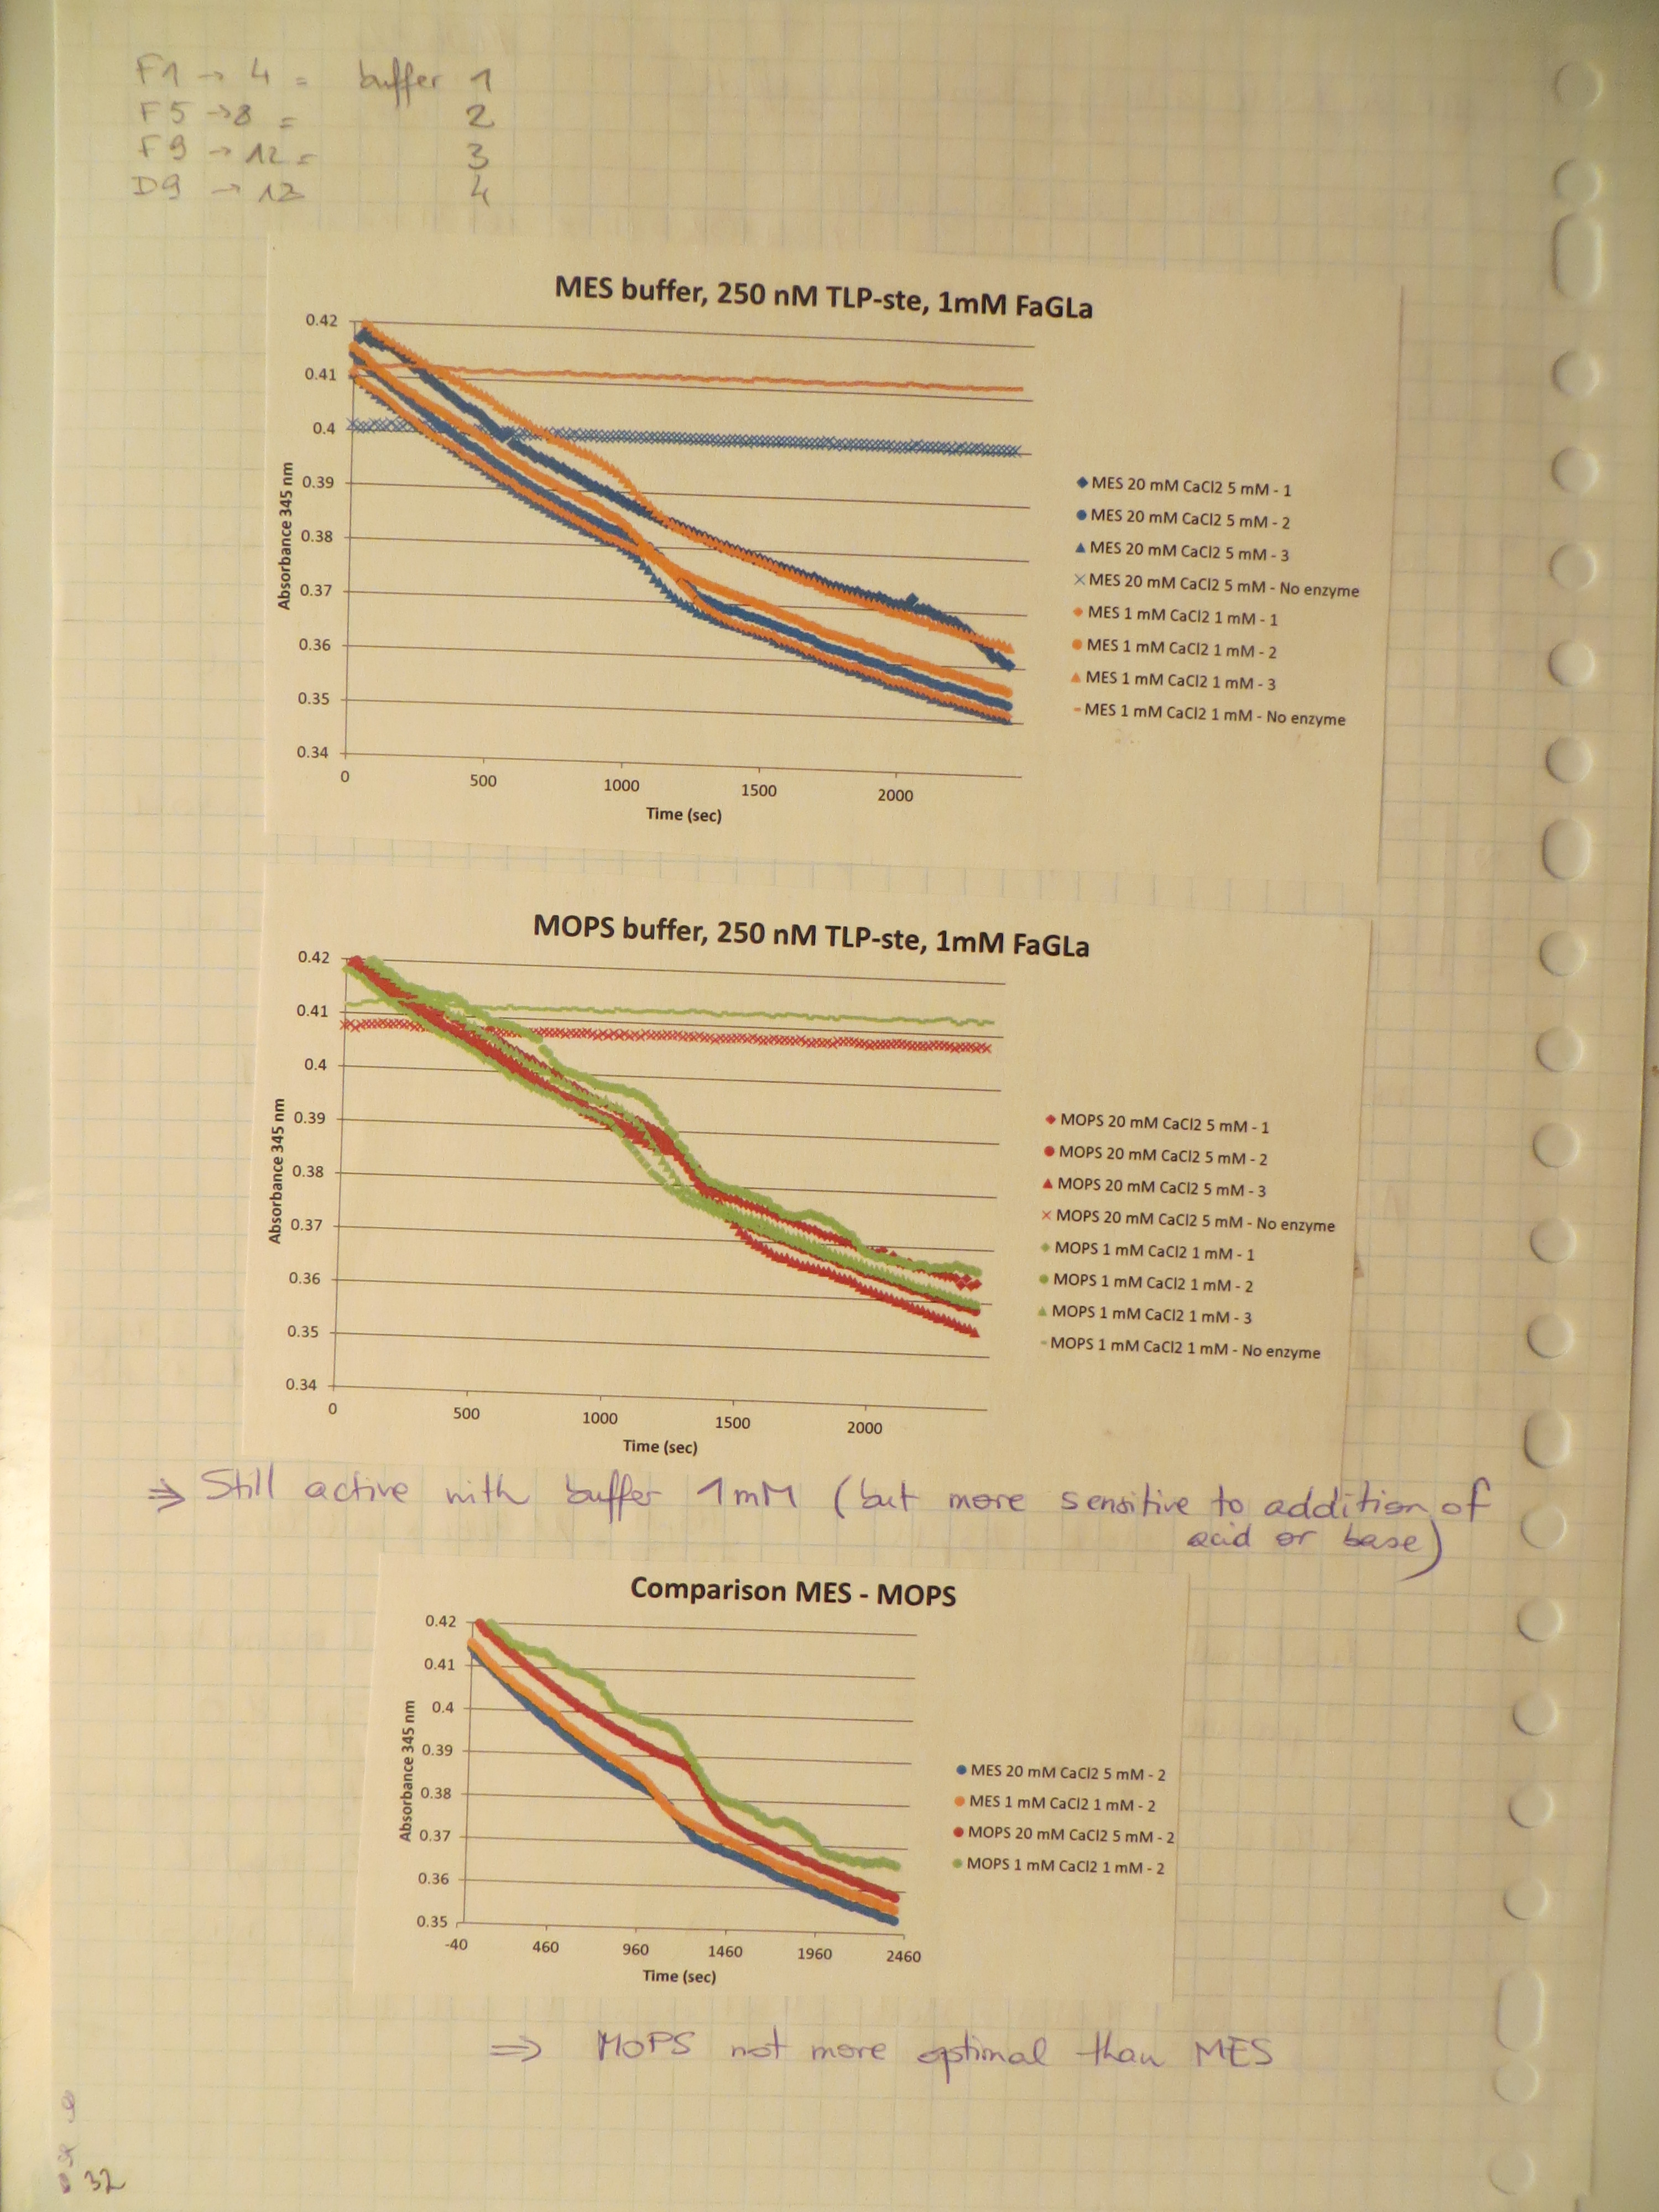 F1 → 4 = buffer 1
F5 → 8 = 2
F9 → 12 = 3
D9 → 12 4
MES buffer, 250 nM TLP-ste, 1mM FaGLa
0.42
0.41
0.4
0.39
0.38
0.37
0.36
0.35
0.34
Absorbance 345 nm
0 500 1000 1500 2000
Time (sec)
MES 20 mM CaCl2 5 mM - 1
MES 20 mM CaCl2 5 mM - 2
MES 20 mM CaCl2 5 mM - 3
MES 20 mM CaCl2 5 mM - No enzyme
MES 1 mM CaCl2 1 mM - 1
MES 1 mM CaCl2 1 mM - 2
MES 1 mM CaCl2 1 mM - 3
MES 1 mM CaCl2 1 mM - No enzyme
MOPS buffer, 250 nM TLP-ste, 1mM FaGLa
0.42
0.41
0.4
0.39
0.38
0.37
0.36
0.35
0.34
Absorbance 345 nm
0 500 1000 1500 2000
Time (sec)
MOPS 20 mM CaCl2 5 mM - 1
MOPS 20 mM CaCl2 5 mM - 2
MOPS 20 mM CaCl2 5 mM - 3
MOPS 20 mM CaCl2 5 mM - No enzyme
MOPS 1 mM CaCl2 1 mM - 1
MOPS 1 mM CaCl2 1 mM - 2
MOPS 1 mM CaCl2 1 mM - 3
MOPS 1 mM CaCl2 1 mM - No enzyme
⇒ Still active with buffer 1mM (but more sensitive to addition of
acid or base)
Comparison MES - MOPS
0.42
0.41
0.4
0.39
0.38
0.37
0.36
0.35
Absorbance 345 nm
-40 460 960 1460 1960 2460
Time (sec)
MES 20 mM CaCl2 5 mM - 2
MES 1 mM CaCl2 1 mM - 2
MOPS 20 mM CaCl2 5 mM - 2
MOPS 1 mM CaCl2 1 mM - 2
⇒ MOPS not more optimal than MES
32